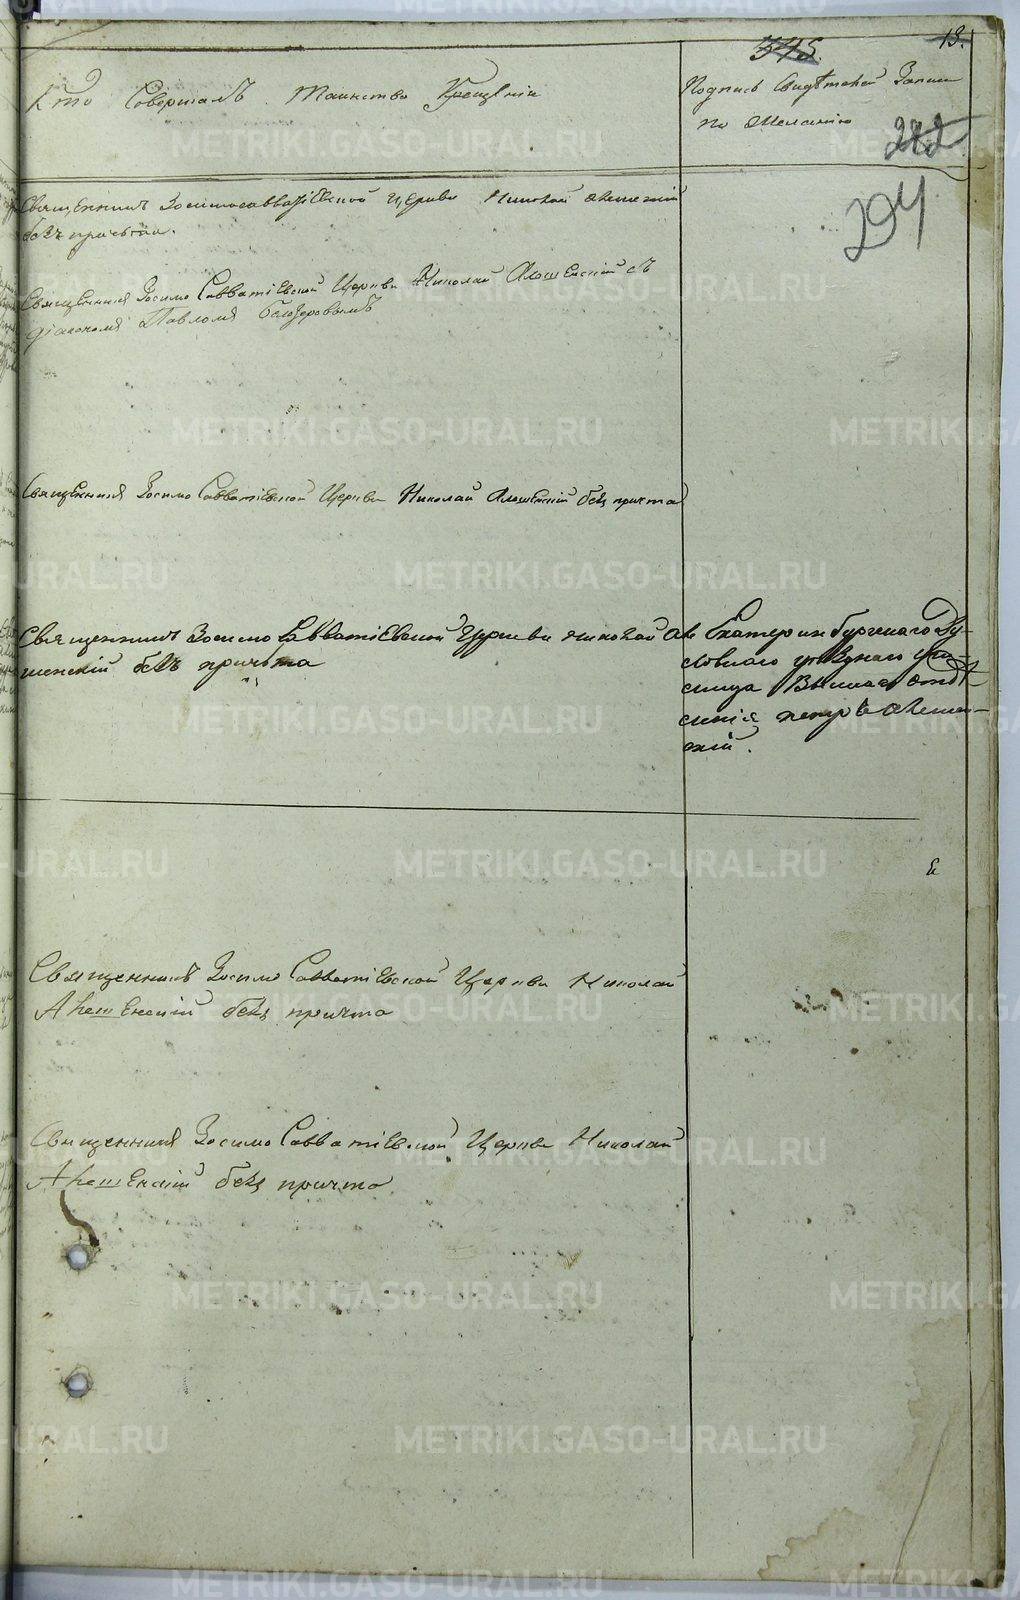 545
13.
Кто Совершалъ Таинство Крещенія
Подпись Свидѣтелей Записи
по желанію
282
294
Священникъ Зосимосавватіевской церкви Николай
безъ причта.
Священникъ Зосимо Савватіевской Церкви Николай съ
діакономъ Павломъ
Священникъ Зосимо Савватіевской Церкви Николай безъ причта
Священникъ Зосимо Савватіевской Церкви Николай Але
шенскій безъ причта
Екатеринбургскаго Ду-
ховнаго уѣзднаго учи-
лища Высшаго отдѣ-
ленія
скій.
Священникъ Зосимо Савватіевской Церкви Николай
Алешенскій безъ причта
Священникъ Зосимо Савватіевской Церкви Николай
Алешенскій безъ причта
METRIKI.GASO-URAL.RU